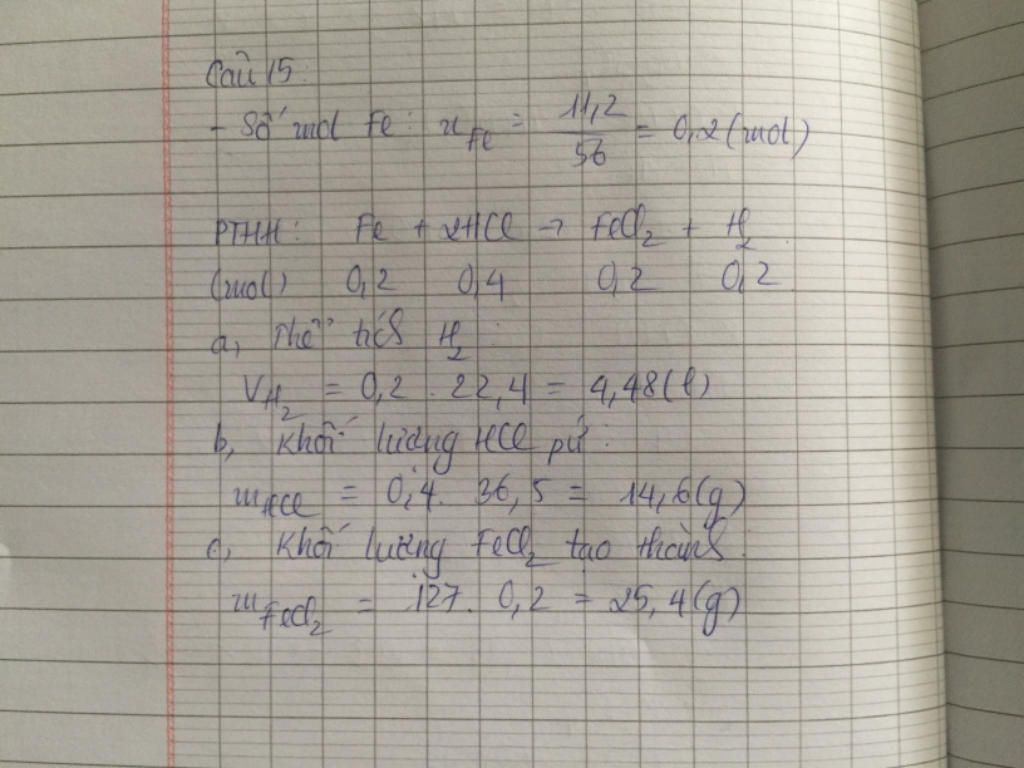 Câu 15:
- Số mol Fe: n Fe = 11,2 / 56 = 0,2 (mol)
PTHH: Fe + 2HCl → FeCl2 + H2
(mol) 0,2 0,4 0,2 0,2
a, Thể tích H2:
VH2 = 0,2 . 22,4 = 4,48 (l)
b, Khối lượng HCl pứ:
mHCl = 0,4. 36,5 = 14,6 (g)
c, Khối lượng FeCl2 tạo thành:
mFeCl2 = 127. 0,2 = 25,4 (g)